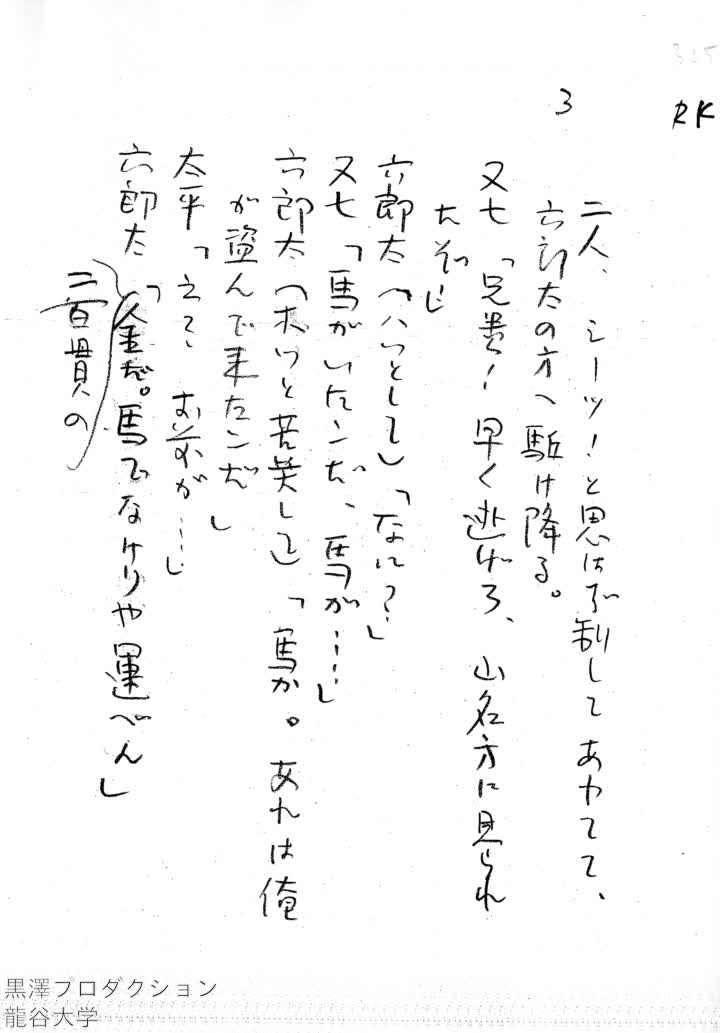 RK
3
二人、シーッ!と思はず制してあわてて、
六郎太の方へ駈け降る。
又七「兄貴!早く逃げろ、山名方に見られ
たぞ!」
六郎太(ハッとして)「なに?」
又七「馬がいたンだ、馬が……」
六郎太(ホッと苦笑して)「馬か。あれは俺
が盗んで来たンだ」
太平「えゝ お前が……」
六郎太「金だ。馬でなけりや運べん」
二百貫の
黒澤プロダクション
龍谷大学